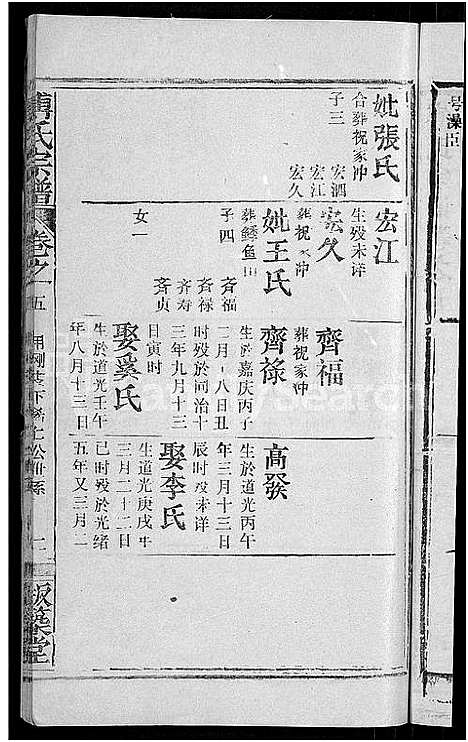 号澡臣
妣張氏
合葬祝家冲
子三
宏泗
宏江
宏久
宏江
生殁未详
宏久
葬祝家冲
妣王氏
葬鳝鱼山
子四
齐福
齐禄
齐寿
齐贞
女一
齊福
葬祝家冲
齊祿
生於嘉庆丙子
二月十八日丑
时殁於同治十
三年九月十三
日寅时
娶奚氏
生於道光壬午
年八月十三日
高發
生於道光丙午
年三月十三日
辰时殁未详
娶李氏
生道光庚戌年
三月二十二日
巳时殁於光绪
五年又三月二
氏宗譜
卷之一
五
二
版築堂